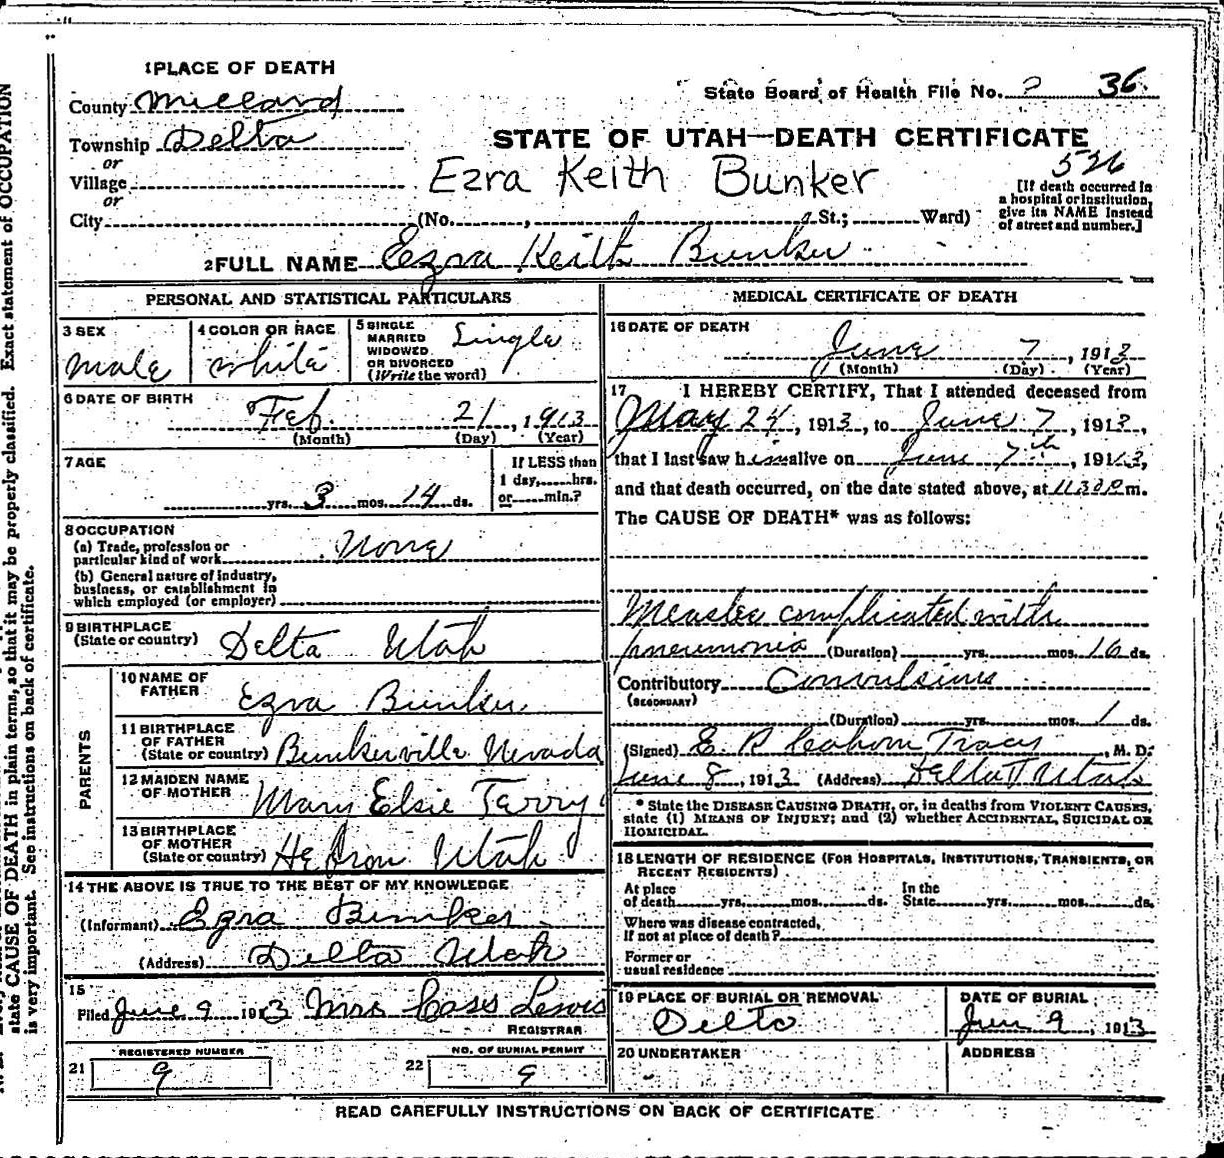 1 PLACE OF DEATH
County Millard
State Board of Health File No. 2 36
Township Delta
STATE OF UTAH—DEATH CERTIFICATE
or
Village Ezra Keith Bunker 526
or
City (No. , St.; Ward)
[If death occurred in
a hospital or institution,
give its NAME instead
of street and number.]
2 FULL NAME Ezra Keith Bunker
PERSONAL AND STATISTICAL PARTICULARS
3 SEX
Male
4 COLOR OR RACE
White
5 SINGLE
MARRIED
WIDOWED
OR DIVORCED
(Write the word)
Single
6 DATE OF BIRTH
Feb. 21, 1913
(Month) (Day) (Year)
7 AGE
yrs. 3 mos. 14 ds.
If LESS than
1 day, hrs.
or min.?
8 OCCUPATION
(a) Trade, profession or
particular kind of work None
(b) General nature of industry,
business, or establishment in
which employed (or employer)
9 BIRTHPLACE
(State or country) Delta Utah
PARENTS
10 NAME OF
FATHER Ezra Bunker
11 BIRTHPLACE
OF FATHER
(State or country) Bunkerville Nevada
12 MAIDEN NAME
OF MOTHER Mary Elsie Terry
13 BIRTHPLACE
OF MOTHER
(State or country) Hebron Utah
14 THE ABOVE IS TRUE TO THE BEST OF MY KNOWLEDGE
(Informant) Ezra Bunker
(Address) Delta Utah
15
Filed June 9 1913 Mrs Cass Lewis
REGISTRAR
21 REGISTERED NUMBER
9
22 NO. OF BURIAL PERMIT
9
MEDICAL CERTIFICATE OF DEATH
16 DATE OF DEATH
June 7, 1913
(Month) (Day) (Year)
17 I HEREBY CERTIFY, That I attended deceased from
May 24, 1913, to June 7, 1913,
that I last saw him alive on June 7th, 1913,
and that death occurred, on the date stated above, at 11:30 P m.
The CAUSE OF DEATH* was as follows:
Measles complicated with
pneumonia (Duration) yrs. mos. 16 ds.
Contributory Convulsions
(SECONDARY)
(Duration) yrs. mos. 1 ds.
(Signed) E. R. Tracy, M. D.
June 8, 1913 (Address) Delta Utah
* State the DISEASE CAUSING DEATH, or, in deaths from VIOLENT CAUSES,
state (1) MEANS OF INJURY; and (2) whether ACCIDENTAL, SUICIDAL OR
HOMICIDAL.
18 LENGTH OF RESIDENCE (FOR HOSPITALS, INSTITUTIONS, TRANSIENTS, OR
RECENT RESIDENTS)
At place
of death yrs. mos. ds.
In the
State yrs. mos. ds.
Where was disease contracted,
If not at place of death?
Former or
usual residence
19 PLACE OF BURIAL OR REMOVAL
Delta
DATE OF BURIAL
Jun 9, 1913
20 UNDERTAKER
ADDRESS
READ CAREFULLY INSTRUCTIONS ON BACK OF CERTIFICATE
state CAUSE OF DEATH in plain terms, so that it may be properly classified. Exact statement of OCCUPATION
is very important. See instructions on back of certificate.